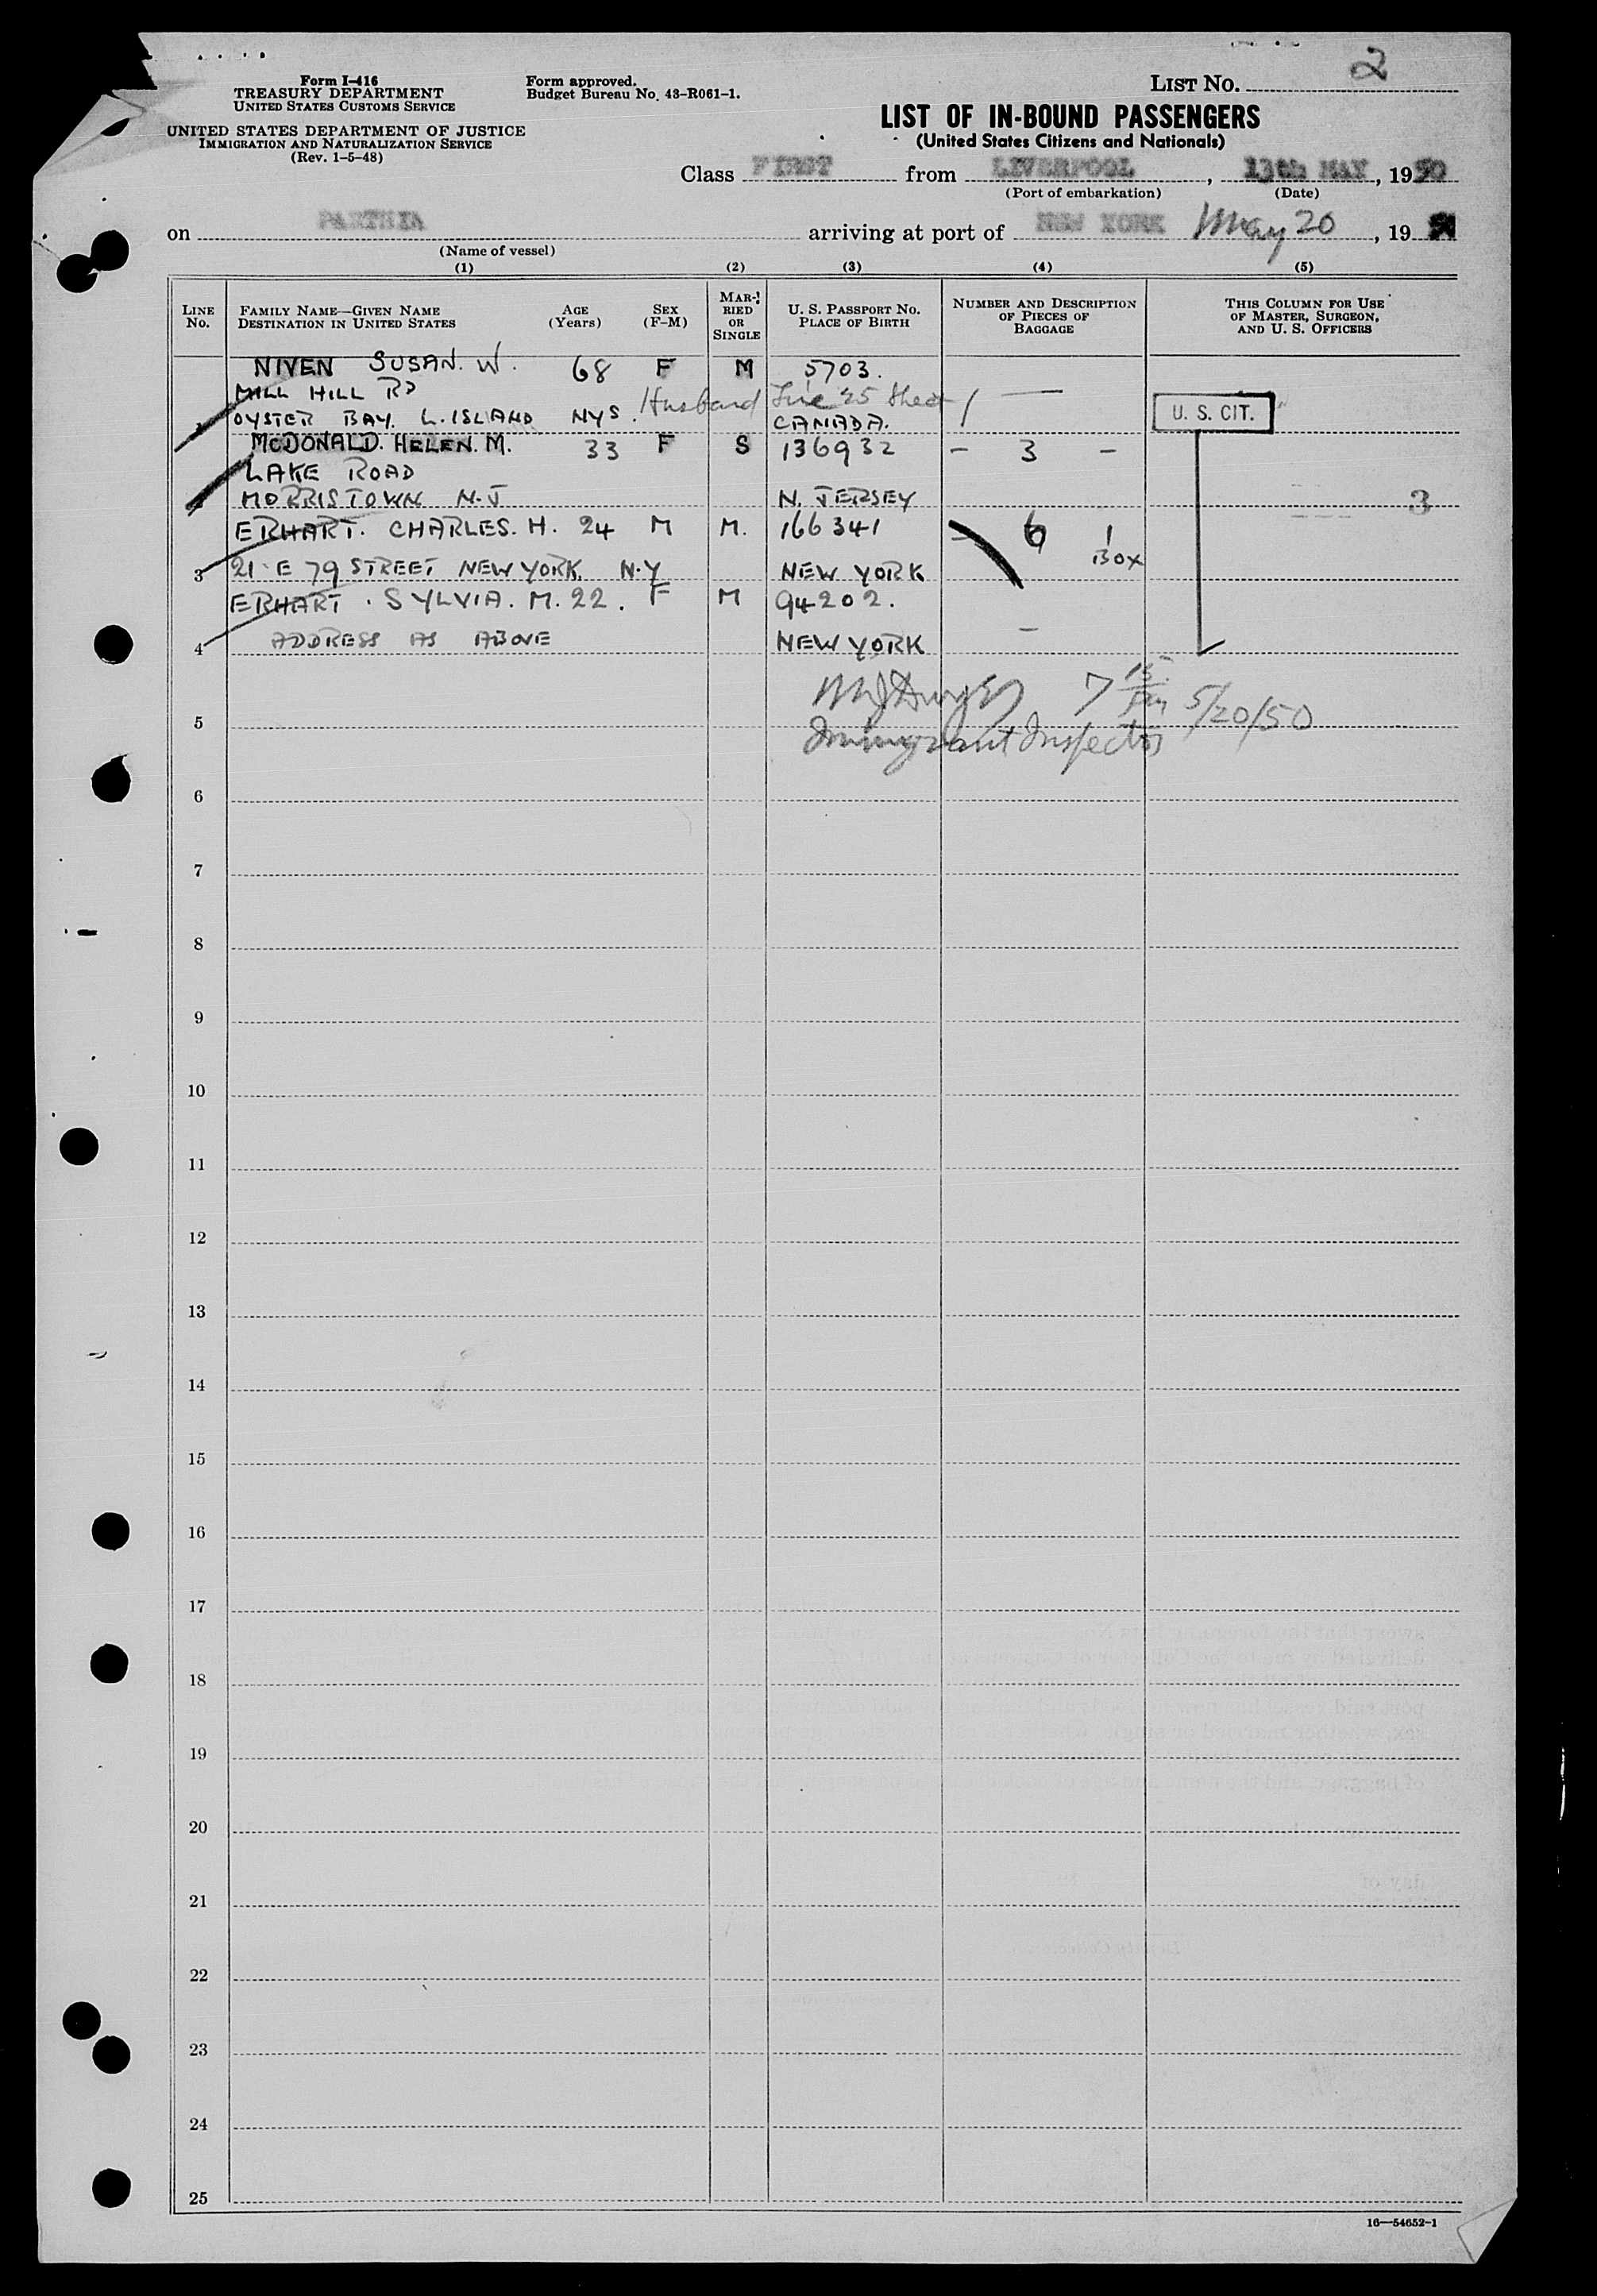 Form I-416
TREASURY DEPARTMENT
UNITED STATES CUSTOMS SERVICE
UNITED STATES DEPARTMENT OF JUSTICE
IMMIGRATION AND NATURALIZATION SERVICE
(Rev. 1-5-48)
Form approved.
Budget Bureau No. 43-R061-1.
LIST NO. 2
LIST OF IN-BOUND PASSENGERS
(United States Citizens and Nationals)
Class FIRST from LIVERPOOL, 13th MAY, 1950
(Port of embarkation) (Date)
on PARTHIA arriving at port of NEW YORK May 20, 19
(Name of vessel)
(1) (2) (3) (4) (5)
LINE No.
FAMILY NAME—GIVEN NAME DESTINATION IN UNITED STATES
AGE (Years)
SEX (F-M)
MARRIED OR SINGLE
U. S. PASSPORT No. PLACE OF BIRTH
NUMBER AND DESCRIPTION OF PIECES OF BAGGAGE
THIS COLUMN FOR USE OF MASTER, SURGEON, AND U. S. OFFICERS
NIVEN SUSAN. W. 68 F M 5703.
MILL HILL RD Husband Line 25
OYSTER BAY. L. ISLAND NYS. CANADA. U. S. CIT.
McDONALD. HELEN. M. 33 F S 136932 - 3 -
LAKE ROAD
MORRISTOWN N.J N. JERSEY 3
ERHART. CHARLES. H. 24 M M. 166341 - 6 1 BOX
3 21 E 79 STREET NEW YORK. N.Y NEW YORK
ERHART. SYLVIA. M. 22. F M 94202.
4 ADDRESS AS ABOVE NEW YORK -
7 15 5/20/50
5 Immigrant Inspector
6
7
8
9
10
11
12
13
14
15
16
17
18
19
20
21
22
23
24
25
16—54652-1